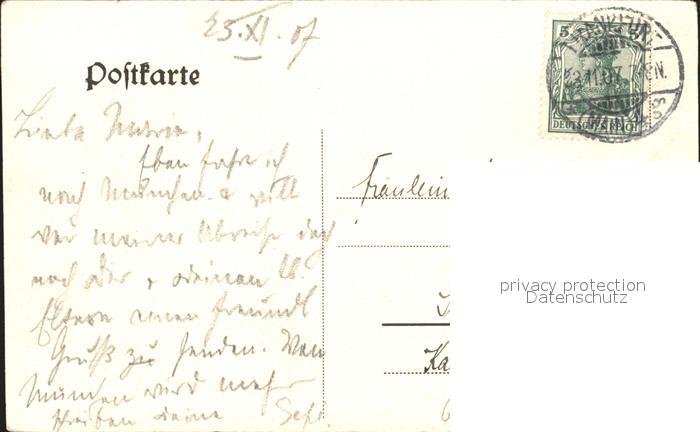 23. XI. 07
Postkarte
5
FRANKFURT
23.11.07. 7-8N.
(MAIN)
DEUTSCHES REICH
Liebe Marie,
Eben fahre ich
nach München & will
vor meiner Abreise doch
noch dir & deinen lb.
Eltern einen freundl
Gruß zu senden. Von
München wird mehr
schreiben deine
Fräulein
privacy protection
Datenschutz
Ka